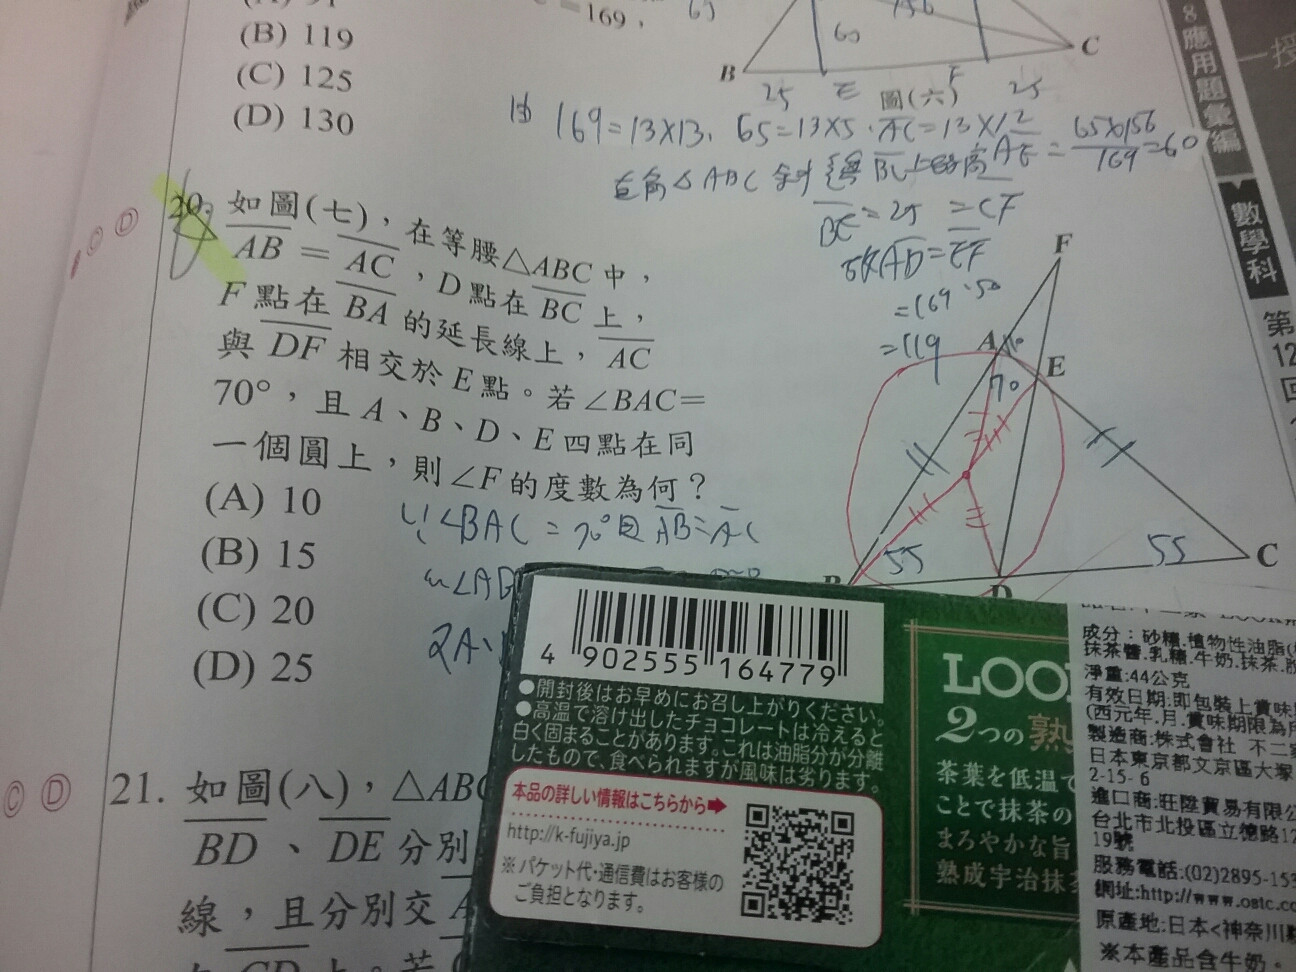 (B) 119
(C) 125
(D) 130
=169,
65
156
60
B
C
25
E
F
25
圖(六)
由 169=13×13. 65=13×5. AC=13×12
直角△ABC 斜邊 BC上的高 AE = 65×156/169 = 60
BE = 25 = CF
故AD=EF
=169-50
=119
C D
20. 如圖(七)，在等腰△ABC中，
AB = AC，D點在BC上，
F點在BA的延長線上，AC
與DF相交於E點。若∠BAC=
70°，且A、B、D、E四點在同
一個圓上，則∠F的度數為何？
(A) 10
(B) 15
(C) 20
(D) 25
∵∠BAC = 70°且AB=AC
F
A
E
70
55
55
C
D
C D
21. 如圖(八)，△ABC
BD、DE分別
線，且分別交
CD
8
應用題彙編
數學科
第
12
回
4 902555 164779
●開封後はお早めにお召し上がりください。
●高温で溶け出したチョコレートは冷えると
白く固まることがあります。これは油脂分が分離
したもので、食べられますが風味は劣ります。
本品の詳しい情報はこちらから
http://k-fujiya.jp
※パケット代・通信費はお客様の
ご負担となります。
LOO
2つの熟
茶葉を低温で
ことで抹茶の
まろやかな旨
熟成宇治抹
成分：砂糖.植物性油脂
抹茶醬.乳糖.牛奶.抹茶.
淨重:44公克
有效日期:即包裝上賞味
(西元年.月.賞味期限為
製造商:株式會社 不二
日本東京都文京區大塚
2-15-6
進口商:旺陞貿易有限公
台北市北投區立德路12
19號
服務電話:(02)2895-153
網址:http://www.ostc.co
原產地:日本<神奈川
※本產品含牛奶。